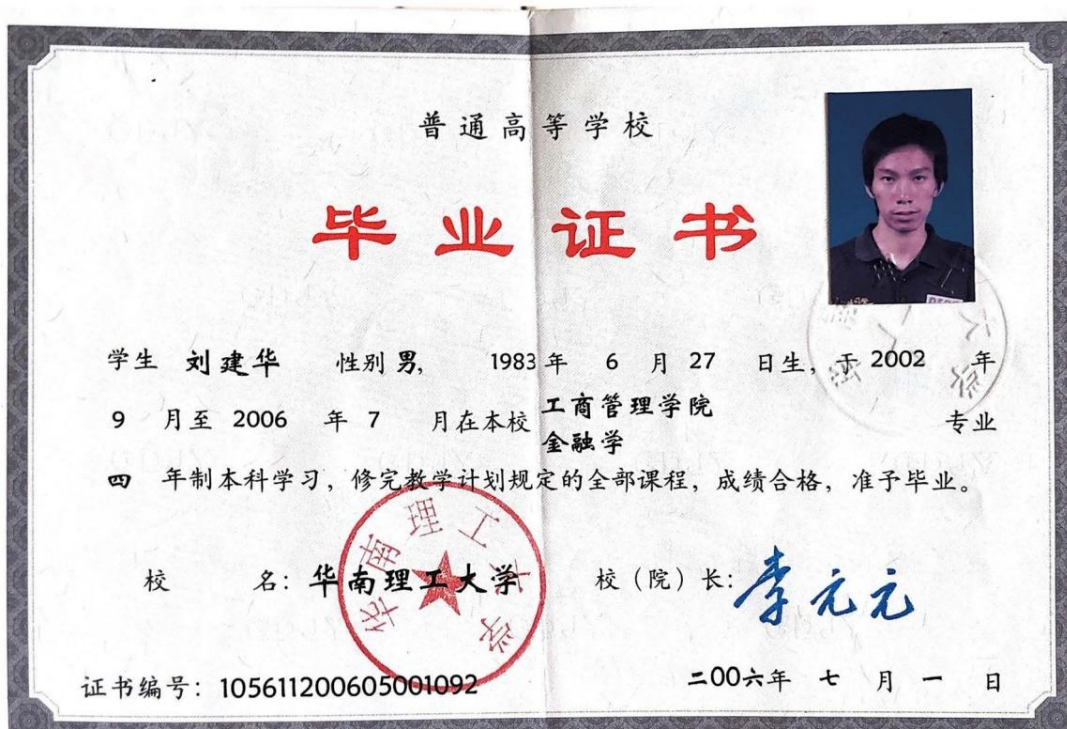 普通高等学校
毕业证书
学生 刘建华 性别 男, 1983 年 6 月 27 日生, 于 2002 年
9 月至 2006 年 7 月在本校 工商管理学院
金融学 专业
四 年制本科学习, 修完教学计划规定的全部课程, 成绩合格, 准予毕业。
校 名: 华南理工大学 校(院)长: 李元元
华南理工大学
证书编号: 105611200605001092 二00六年 七 月 一 日